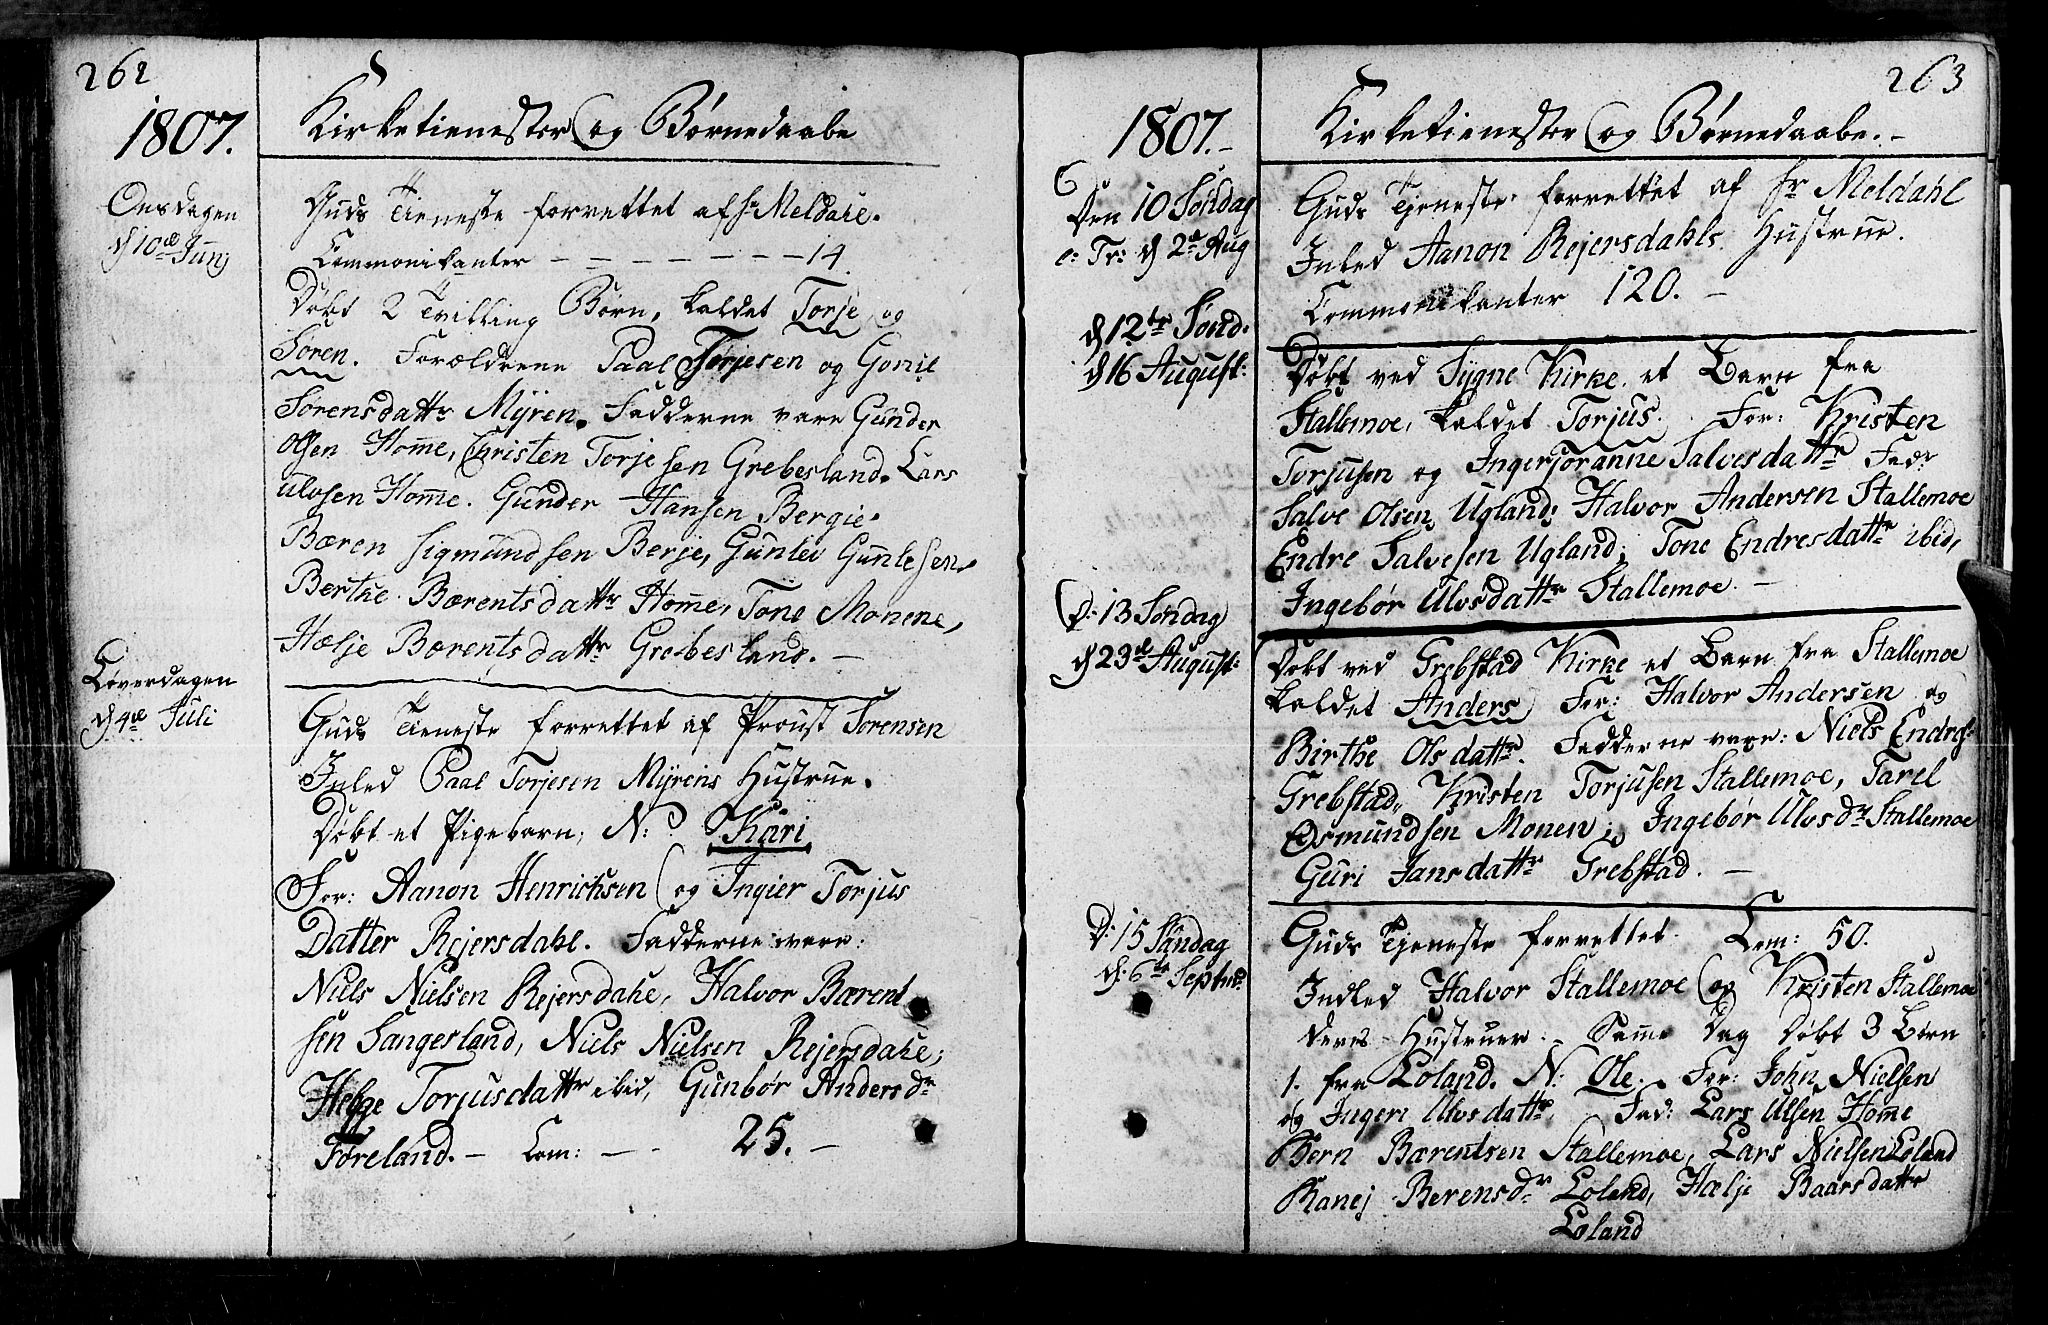 262
1807.
Kirketienester og Börnedaabe
Onsdagen
d 10de Junj
Guds Tieneste forrettet af Hr Meldahl.
Commonikanter - - - - - - - 14.
Döbt 2 Tvilling Börn, kaldet Torje og
Sören. Forældrene Paal Torjesen og Gonil
Sörensdattr Myren. Fadderne vare Gunder
Olsen Home, Christen Torjesen Grebesland. Lars
Ulvsen Home. Gunder Hansen Bergie.
Bæren Sigmundsen Berje, Gunlev Gunlesen
Berthe Bærentsdattr Home, Tone Monene,
Hælje Bærentsdattr Grebesland. -
Löverdagen
d 4de Juli
Guds Tieneste forrettet af Proust Sörensen
Inled Paal Torjesen Myrens Hustrue.
Döbt et Pigebarn, N: Kari
For: Aanon Henrichsen og Ingier Torjus
Datter Rejersdahl. Fadderne vare:
Niels Nielsen Rejersdahl, Halvor Bærent
sen Sangesland, Niels Nielsen Rejersdahl;
Helge Torjusdattr ibid, Gunbör Andersdr
Föreland. - Com: - - 25. -
263
1807. -
Kirketienester og Börnedaabe. -
Den 10 Söndag
e: Tr: d 2de Aug
Guds Tjeneste forrettet af Hr Meldahl
Inled Aanon Rejersdahls Hustrue.
Commonikanter 120. -
d 12te Sönd:
d 16 August:
Döbt ved Sygne Kirke et Barn fra
Stallemoe, kaldet Torjus. For: Kristen
Torjusen og Ingerjoranne Salvesdattr Fadr
Salve Olsen Ugland; Halvor Andersen Stallemoe
Endre Salvesen Ugland; Tone Endresdattr ibid,
Ingebör Ulvsdattr Stallemoe. -
D: 13 Söndag
d 23de August:
Döbt ved Grebstad Kirke et Barn fra Stallemoe
kaldet Anders For: Halvor Andersen og
Birthe Olsdattr. Fadderne vare: Niels Endres:
Grebstad, Kristen Torjusen Stallemoe, Tarel
Osmundsen Monen; Ingebör Ulvsdr Stallemoe
Guri Jansdattr Grebstad. -
D: 15 Söndag
d: 6te Septmb:
Guds Tjeneste forrettet. Com: 50.
Indled Halvor Stallemoe og Kristen Stallemoe
deres Hustruer. - Same Dag Döbt 3 Börn
1. fra Loland. N: Ole. For: John Nielsen
og Ingeri Ulvsdattr. Fad: Lars Ulsen Home
Bern Bærentsen Stallemoe, Lars Nielsen Loland
Ranej Berensdr Loland, Hælje Baarsdattr
Loland